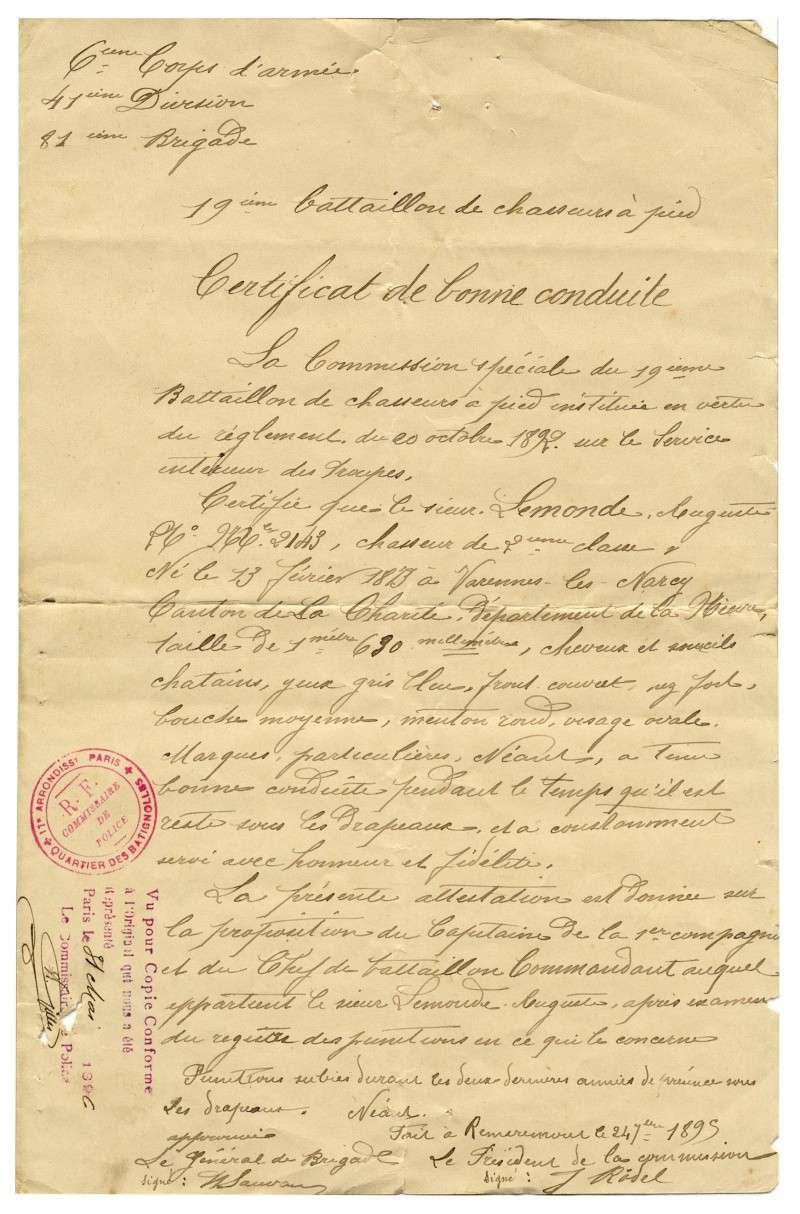 6ième Corps d'armée.
41ième Division
81 ième Brigade
19ième battaillon de chasseurs à pied
Certificat de bonne conduite
La Commission spéciale du 19ième
Battaillon de chasseurs à pied instituée en vertu
du réglement. du 20 octobre 1892. sur le Service
intérieur des Troupes.
Certifie que le sieur. Lemonde. Auguste
No Mle 2143, chasseur de 2ième classe,
Né le 13 février 1873 à Varennes-les-Narcy
Canton de La Charité. département de la Nièvre,
taille de 1 mètre 630 millimètres, cheveux et sourcils
chatains, yeux gris bleu, front couvert, nez fort,
bouche moyenne, menton rond, visage ovale.
Marques, particulières, Néant, a tenu
bonne conduite pendant le temps qu'il est
resté sous les drapeaux. et a constamment
servi avec honneur et fidélité.
La présente attestation est donnée sur
la proposition du Capitaine de la 1er compagnie
et du Chef de battaillon Commandant auquel
appartient le sieur Lemonde. Auguste, après examen
du registre des punitions en ce qui le concerne
Punitions subies durant les deux dernières années de présence sous
les drapeaux. Néant.
approuvé
Fait à Remiremont le 24 7bre 1895
Le Général de Brigade
Le Président de la commission
signé :
signé : J Rödel
17e ARRONDISSt PARIS
QUARTIER DES BATIGNOLLES
R.F.
COMMISSAIRE
DE
POLICE
Vu pour Copie Conforme
à l'Original qui nous a été
Représenté
Paris le 31 Mai 1896
Le Commissaire de Police